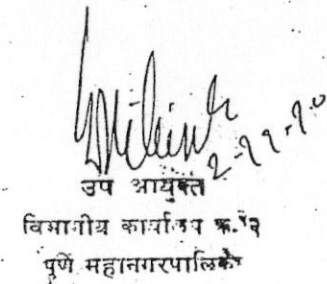 २-११-१०
उप आयुक्त
विभागीय कार्यालय क्र. २
पुणे महानगरपालिका